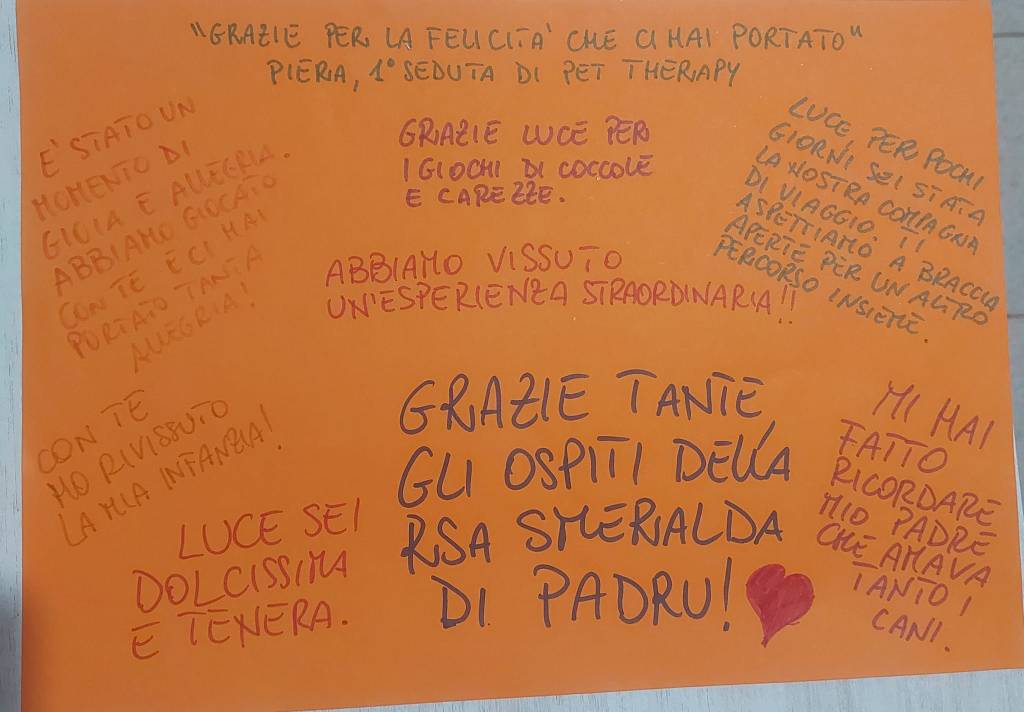 "GRAZIE PER LA FELICITA' CHE CI HAI PORTATO"
PIERA, 1° SEDUTA DI PET THERAPY
E' STATO UN
MOMENTO DI
GIOIA E ALLEGRIA.
ABBIAMO GIOCATO
CON TE E CI HAI
PORTATO TANTA
ALLEGRIA!
GRAZIE LUCE PER
I GIOCHI DI COCCOLE
E CAREZZE.
LUCE, PER POCHI
GIORNI, SEI STATA
LA NOSTRA COMPAGNA
DI VIAGGIO !!
ASPETTIAMO A BRACCIA
APERTE PER UN ALTRO
PERCORSO INSIEME.
ABBIAMO VISSUTO
UN'ESPERIENZA STRAORDINARIA!!
CON TE
HO RIVISSUTO
LA MIA INFANZIA!
LUCE SEI
DOLCISSIMA
E TENERA.
GRAZIE TANTE,
GLI OSPITI DELLA
RSA SMERALDA
DI PADRU!
MI HAI
FATTO
RICORDARE
MIO PADRE
CHE AMAVA
TANTO I
CANI.